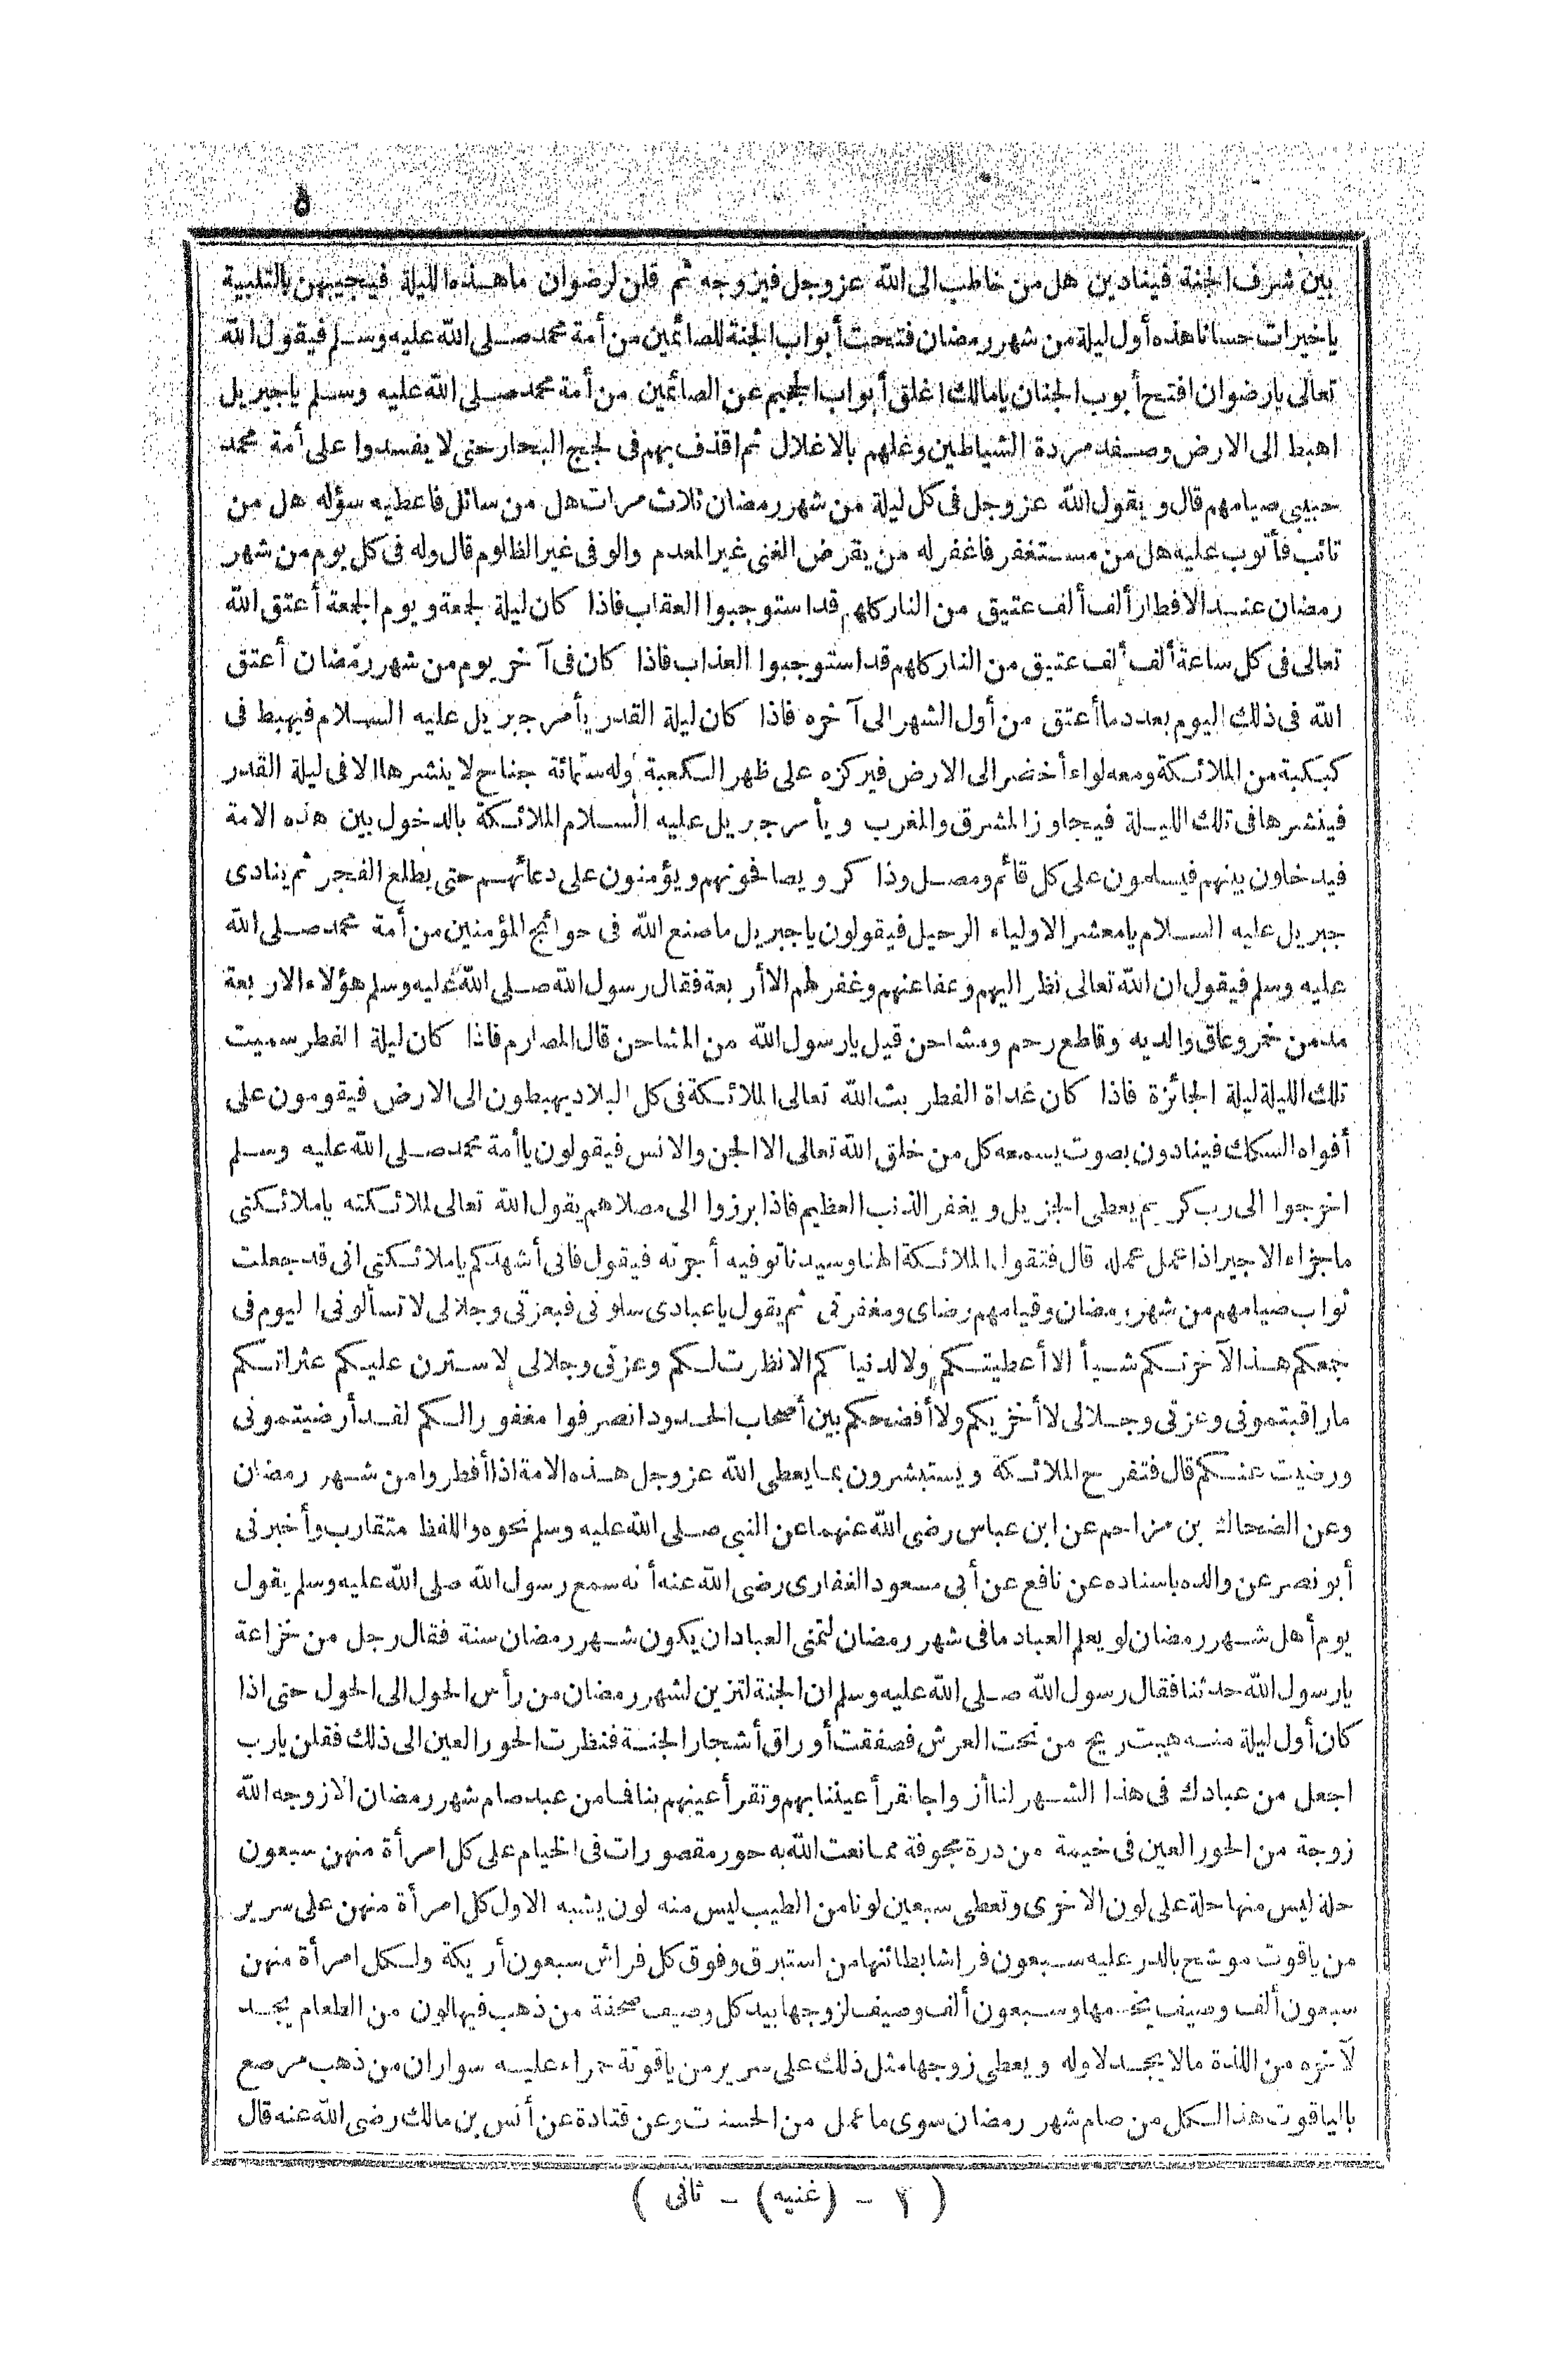 ٥
بين شرف الجنة فينادين هل من خاطب الى الله عز وجل فيزوجه ثم قلن لرضوان ما هذه الليلة فيجيبهن بالتلبية
ياخيرات حسانا هذه أول ليلة من شهر رمضان فتحت أبواب الجنة للصائمين من أمة محمد صلى الله عليه وسلم فيقول الله
تعالى يارضوان افتح أبوب الجنان يامالك اغلق أبواب الجحيم عن الصائمين من أمة محمد صلى الله عليه وسلم ياجبريل
اهبط الى الارض وصفد مردة الشياطين وغلهم بالاغلال ثم اقذف بهم فى لجج البحار حتى لا يفسدوا على أمة محمد
حبيبى صيامهم قال ويقول الله عز وجل فى كل ليلة من شهر رمضان ثلاث مرات هل من سائل فاعطيه سؤله هل من
تائب فأتوب عليه هل من مستغفر فاغفر له من يقرض الغنى غير المعدم والوفى غير الظلوم قال وله فى كل يوم من شهر
رمضان عند الافطار ألف ألف عتيق من النار كلهم قد استوجبوا العقاب فاذا كان ليلة لجمعة ويوم الجمعة أعتق الله
تعالى فى كل ساعة ألف ألف عتيق من النار كلهم قد استوجبوا العذاب فاذا كان فى آخر يوم من شهر رمضان أعتق
الله فى ذلك اليوم بعدد ما أعتق من أول الشهر الى آخره فاذا كان ليلة القدر يأمر جبريل عليه السلام فيهبط فى
كبكبة من الملائكة ومعه لواء أخضر الى الارض فيركزه على ظهر الكعبة وله ستمائة جناح لا ينشرها الا فى ليلة القدر
فينشرها فى تلك الليلة فيجاوز المشرق والمغرب ويأمر جبريل عليه السلام الملائكة بالدخول بين هذه الامة
فيدخلون بينهم فيسلمون على كل قائم ومصل وذاكر ويصافحونهم ويؤمنون على دعائهم حتى يطلع الفجر ثم ينادى
جبريل عليه السلام يامعشر الاولياء الرحيل فيقولون ياجبريل ما صنع الله فى حوائج المؤمنين من أمة محمد صلى الله
عليه وسلم فيقول ان الله تعالى نظر اليهم وعفا عنهم وغفر لهم الا أربعة فقال رسول الله صلى الله عليه وسلم هؤلاء الاربعة
مدمن خمر وعاق والديه وقاطع رحم ومشاحن قيل يارسول الله من المشاحن قال المصارم فاذا كان ليلة الفطر سميت
تلك الليلة ليلة الجائزة فاذا كان غداة الفطر بث الله تعالى الملائكة فى كل البلاد يهبطون الى الارض فيقومون على
أفواه السكك فينادون بصوت يسمعه كل من خلق الله تعالى الا الجن والانس فيقولون ياأمة محمد صلى الله عليه وسلم
اخرجوا الى رب كريم يعطى الجزيل ويغفر الذنب العظيم فاذا برزوا الى مصلاهم يقول الله تعالى لملائكته ياملائكتى
ما جزاء الاجير اذا عمل عمله قال فتقول الملائكة الهنا وسيدنا توفيه أجرته فيقول فانى أشهدكم ياملائكتى انى قد جعلت
ثواب صيامهم من شهر رمضان وقيامهم رضاى ومغفرتى ثم يقول ياعبادى سلونى فبعزتى وجلالى لا تسألونى اليوم فى
جمعكم هذا لآخرتكم شيأ الا أعطيتكم ولا لدنياكم الا نظرت لكم وعزتى وجلالى لاسترن عليكم عثراتكم
ماراقبتمونى وعزتى وجلالى لا أخزيكم ولا أفضحكم بين أصحاب الحدود انصرفوا مغفورا لكم لقد أرضيتمونى
ورضيت عنكم قال فتفرح الملائكة ويستبشرون بما يعطى الله عز وجل هذه الامة اذا أفطروا من شهر رمضان
وعن الضحاك بن مزاحم عن ابن عباس رضى الله عنهما عن النبى صلى الله عليه وسلم نحوه واللفظ متقارب وأخبرنى
أبو نصر عن والده باسناده عن نافع عن أبى مسعود الغفارى رضى الله عنه أنه سمع رسول الله صلى الله عليه وسلم يقول
يوم أهل شهر رمضان لو يعلم العباد ما فى شهر رمضان لتمنى العباد ان يكون شهر رمضان سنة فقال رجل من خزاعة
يارسول الله حدثنا فقال رسول الله صلى الله عليه وسلم ان الجنة لتزين لشهر رمضان من رأس الحول الى الحول حتى اذا
كان أول ليلة منه هبت ريح من تحت العرش فصفقت أوراق أشجار الجنة فنظرت الحور العين الى ذلك فقلن يارب
اجعل من عبادك فى هذا الشهر لنا أزواجا تقر أعيننا بهم وتقر أعينهم بنا فما من عبد صام شهر رمضان الا زوجه الله
زوجة من الحور العين فى خيمة من درة مجوفة مما نعت الله به حور مقصورات فى الخيام على كل امرأة منهن سبعون
حلة ليس منها حلة على لون الاخرى وتعطى سبعين لونا من الطيب ليس منه لون يشبه الاول كل امرأة منهن على سرير
من ياقوت موشح بالدر عليه سبعون فراشا بطائنها من استبرق وفوق كل فراش سبعون أريكة ولكل امرأة منهن
سبعون ألف وصيف يخدمها وسبعون ألف وصيف لزوجها بيد كل وصيف صحفة من ذهب فيها لون من الطعام يجد
لآخره من اللذة مالا يجد لاوله ويعطى زوجها مثل ذلك على سرير من ياقوتة حمراء عليه سواران من ذهب مرصع
بالياقوت هذا لكل من صام شهر رمضان سوى ما عمل من الحسنات وعن قتادة عن أنس بن مالك رضى الله عنه قال
( ٢ - (غنيه) - ثانى )